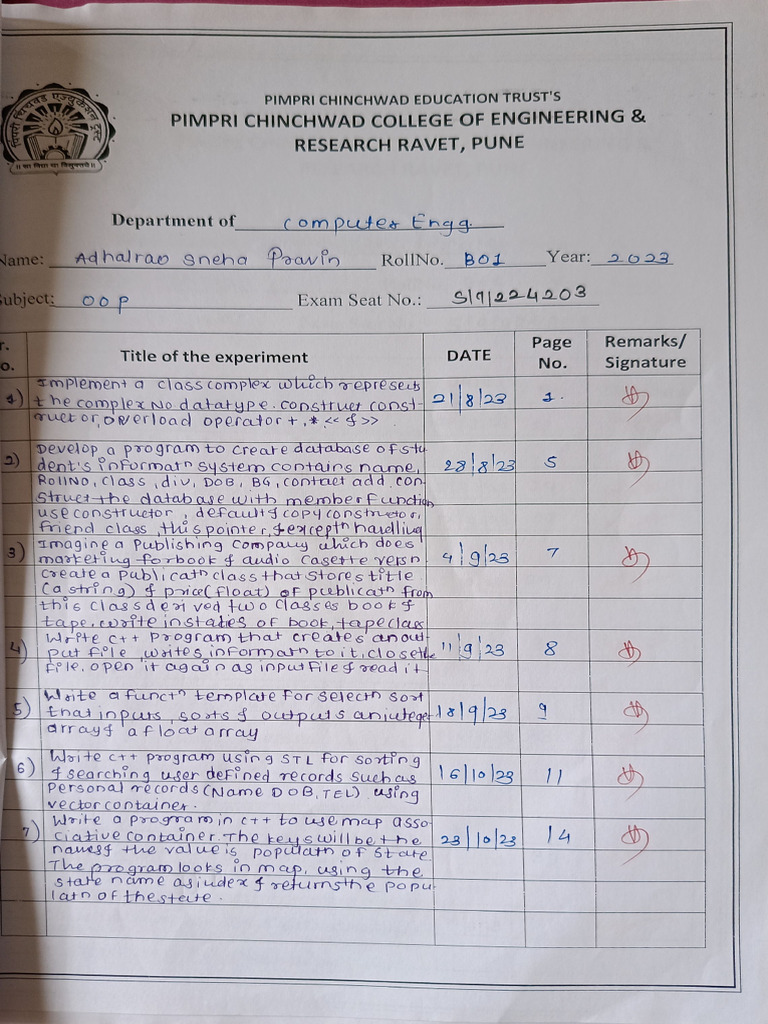 पिंपरी चिंचवड एज्युकेशन ट्रस्ट
॥ सा विद्या या विमुक्तये ॥
PIMPRI CHINCHWAD EDUCATION TRUST'S
PIMPRI CHINCHWAD COLLEGE OF ENGINEERING &
RESEARCH RAVET, PUNE
Department of Computer Engg.
Name: Adhalrao Sneha Pravin RollNo. B01 Year: 2023
Subject: OOP Exam Seat No.:
r. Title of the experiment DATE Page Remarks/
o. No. Signature
1) Implement a class complex which represents 21/8/23 1.
the complex No. datatype. construct const-
ructor, overload operator +, * << & >>
2) Develop a program to create database of stu 28/8/23 5
dent's informatn system contains name,
RollNo, class, div, DOB, BG, contact add. con-
struct the database with member function
use constructor, default & copy constructor,
friend class, this pointer, & exceptn handling
3) Imagine a publishing company which does 4/9/23 7
marketing for book & audio casette versn
create a publicatn class that stores title
(a string) & price(float) of publicatn from
this class derived two classes book &
tape. write instaties of book, tape class
4) Write c++ program that creates an out 11/9/23 8
put file, writes informatn to it, close the
file, open it again as input file & read it
5) Write a functn template for selectn sort 18/9/23 9
that inputs, sorts & outputs an integer
array & a float array
6) Write c++ program using STL for sorting 16/10/23 11
& searching user defined records such as
personal records (Name DOB, TEL) using
vector container.
7) Write a program in c++ to use map asso- 23/10/23 14
ciative container. The keys will be the
names & the value is populatn of state
The program looks in map, using the
state name as index & returns the popu
latn of the state.